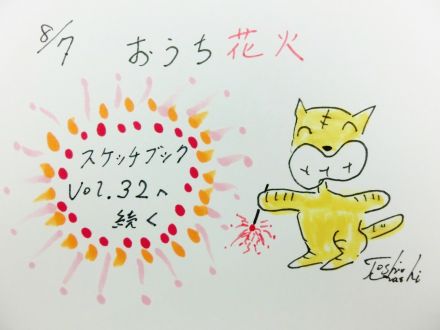 8/7 おうち花火
スケッチブック
Vol.32へ
続く